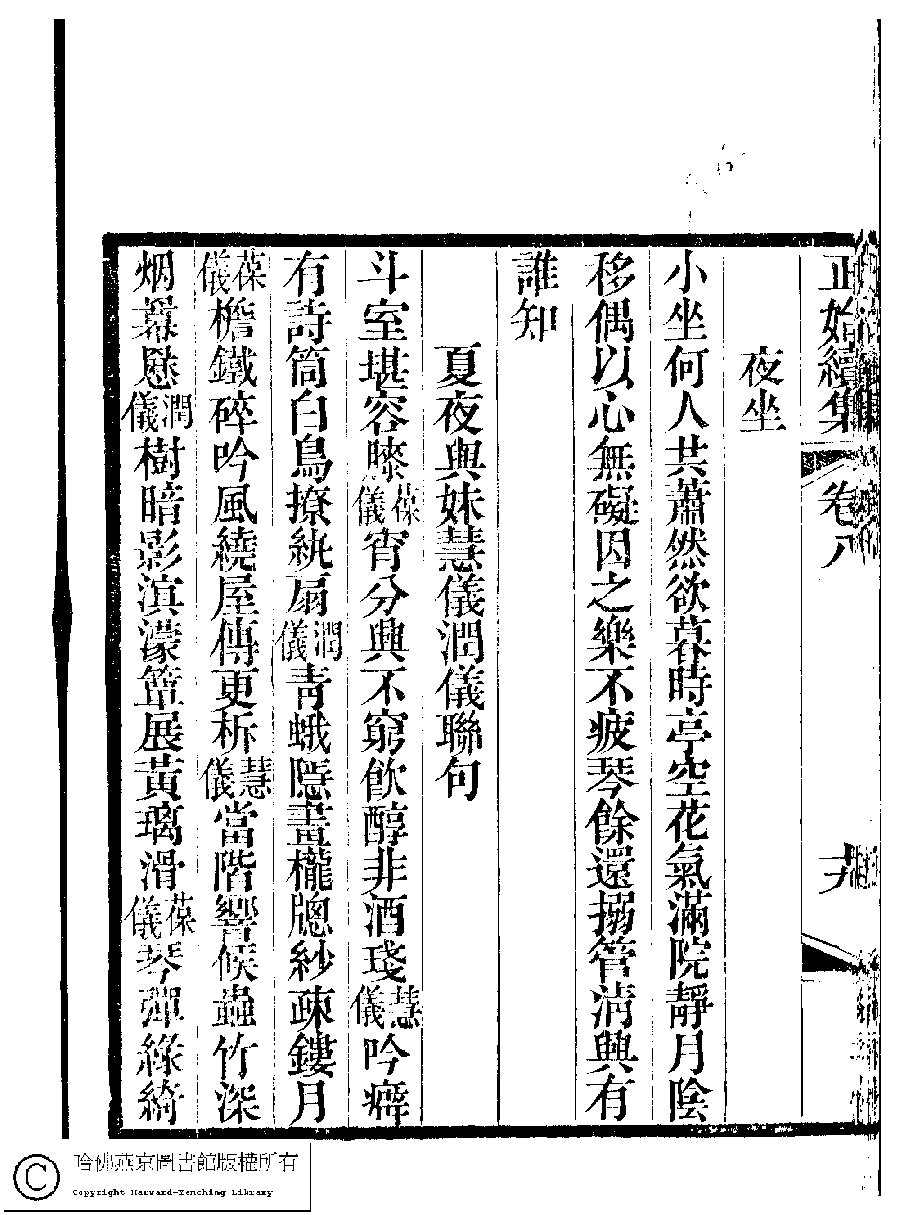 正始續集 卷八
夜坐
小坐何人共蕭然欲暮時亭空花氣滿院靜月陰
移偶以心無礙因之樂不疲琴餘還搦管淸興有
誰知
夏夜與妹慧儀潤儀聯句
斗室堪容膝葆儀宵分興不窮飮醇非酒琖慧儀吟癖
有詩筒白鳥撩紈扇潤儀靑蛾隱畫櫳牕紗疎鏤月
葆儀檐鐵碎吟風繞屋傳更柝慧儀當階響候蟲竹深
烟羃㥜潤儀樹暗影溟濛簟展黃璃滑葆儀琴彈綠綺
哈佛燕京圖書館版權所有
Copyright Harvard-Yenching Library